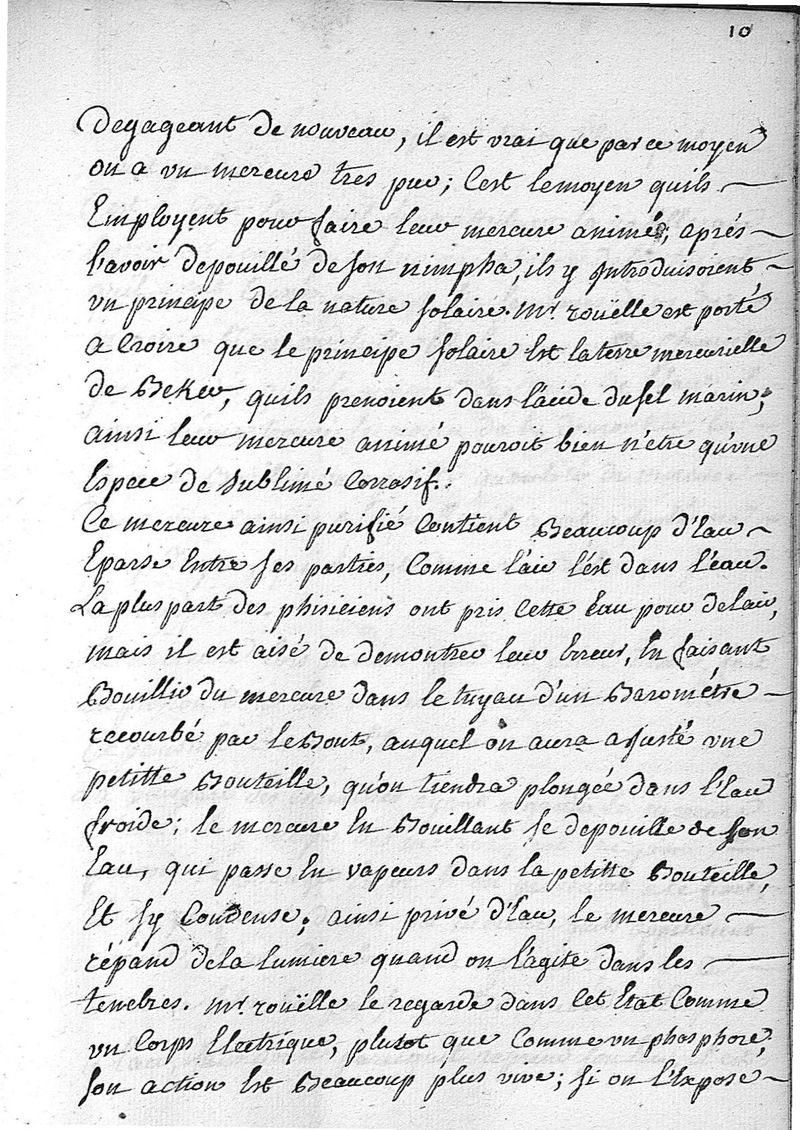 10
Degageant de nouveau, il est vrai que par ce moyen
on a vn mercure tres pur; C'est le moyen quils
Employent pour faire leur mercure animé, aprés
l'avoir depouillé de son nimpha, ils y Introduisoient
vn principe de la nature solaire. Mr. roüelle est porté
a Croire que le principe solaire Est la terre mercurielle
de Beker, quils prenoient dans l'acide du sel marin;
ainsi leur mercure animé pouroit bien n'etre qu'vne
Espece de sublimé Corrasif.
Ce mercure ainsi purifié Contient Beaucoup d'Eau
Eparse Entre ses parties, Comme l'air l'est dans l'eau.
La plus part des phisiciens ont pris Cette Eau pour de lair,
mais il est aisé de demontrer leur Erreur, En faisant
Bouillir du mercure dans le tuyau d'un Barométre
recourbé par le Bout, auquel on aura ajusté vne
petitte Bouteille, qu'on tiendra plongée dans l'Eau
froide; le mercure En Bouillant se depouille de son
Eau, qui passe En vapeurs dans la petitte Bouteille,
Et sy Condense; ainsi privé d'Eau, le mercure
répand de la lumiere quand on l'agite dans les
tenebres. Mr. roüelle le regarde dans Cet Etat Comme
vn Corps Electrique, plutot que Comme vn phosphore,
son action Est Beaucoup plus vive; si on l'Expose